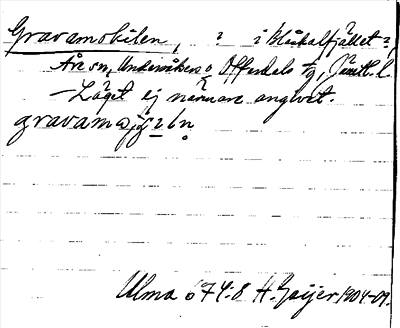 Gravamobilen, ? i Bläkalfjället ?,
Åre sn, Undersåkers o Offerdals tg, Jämtl. l.
– Läget ej närmare angivet.
gravam
Ulma 674:8 H. Geijer 1904-09.